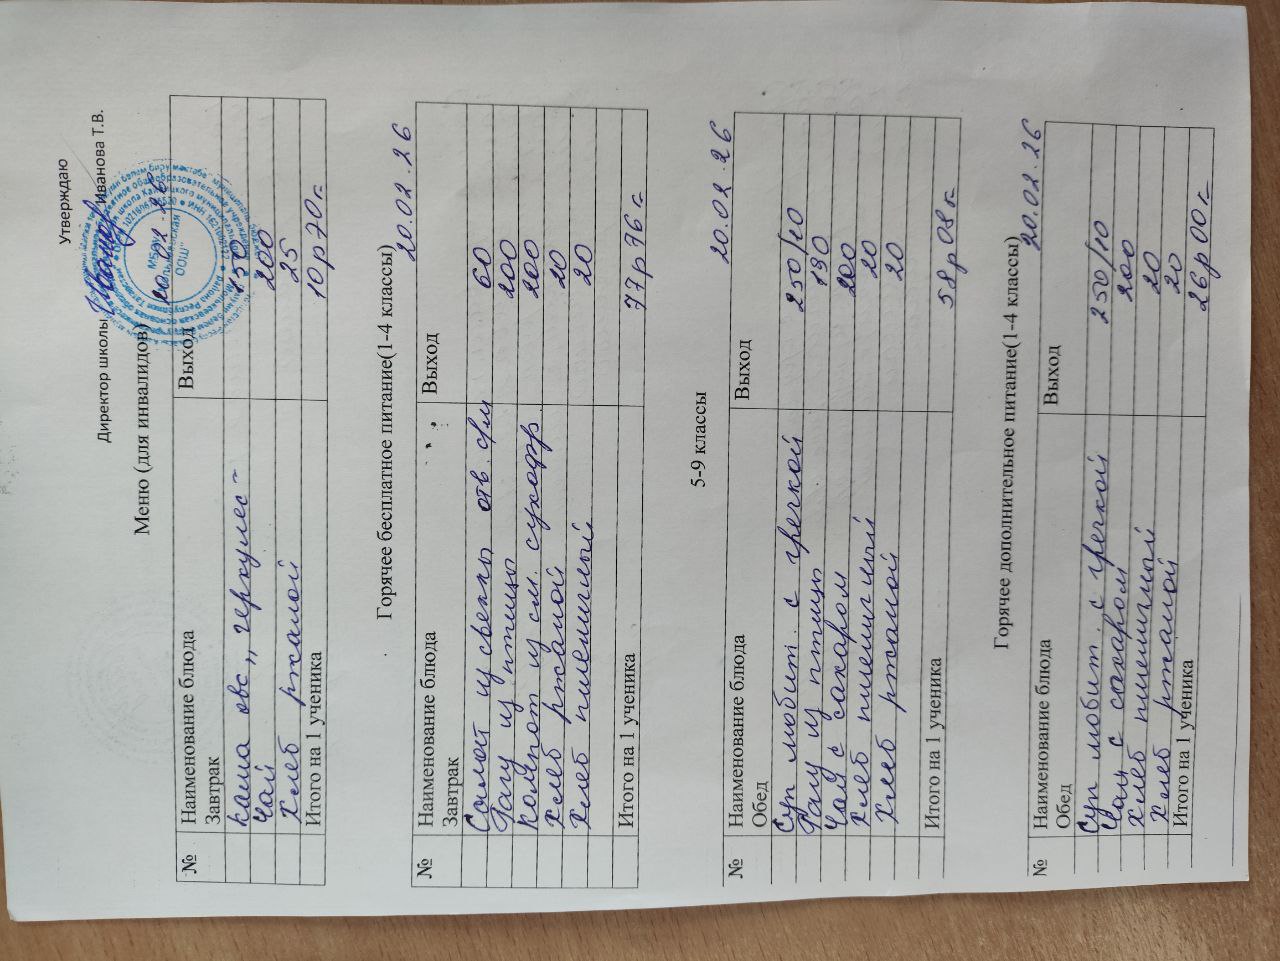 Утверждаю
Директор школы Иванова Т.В.
Меню (для инвалидов) 20.02.26
№ Наименование блюда Выход
Завтрак
каша овс „геркулес" 150
Чай 200
Хлеб ржаной 25
Итого на 1 ученика 10р70к
Горячее бесплатное питание(1-4 классы)
20.02.26
№ Наименование блюда Выход
Завтрак
Салат из свеклы отв. с/м 60
Рагу из птицы 200
Компот из см. сухофр 200
Хлеб ржаной 20
Хлеб пшеничный 20
Итого на 1 ученика 77р76к
5-9 классы
20.02.26
№ Наименование блюда Выход
Обед
Суп любит. с гречкой 250/10
Рагу из птицы 180
Чай с сахаром 200
Хлеб пшеничный 20
Хлеб ржаной 20
Итого на 1 ученика 58р08к
Горячее дополнительное питание(1-4 классы)
20.02.26
№ Наименование блюда Выход
Обед
Суп любит. с гречкой 250/10
Чай с сахаром 200
Хлеб пшеничный 20
Хлеб ржаной 20
Итого на 1 ученика 26р00к